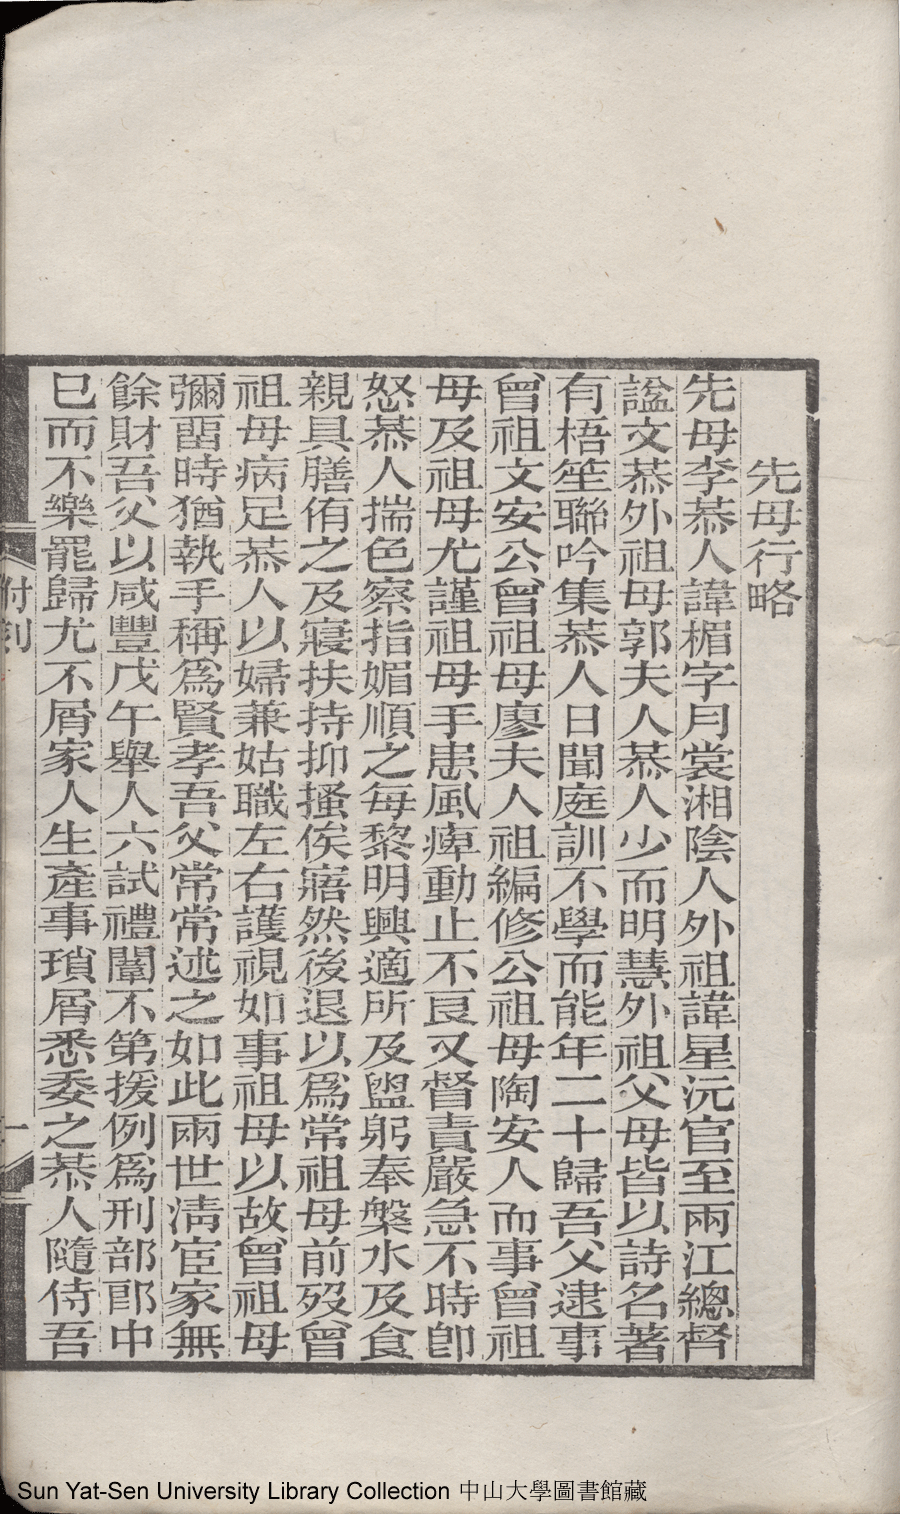 先母行略
先母李恭人諱楣字月裳湘陰人外祖諱星沅官至兩江總督
諡文恭外祖母郭夫人恭人少而明慧外祖父母皆以詩名著
有梧笙聯吟集恭人日聞庭訓不學而能年二十歸吾父逮事
曾祖文安公曾祖母廖夫人祖編修公祖母陶安人而事曾祖
母及祖母尤謹祖母手患風痺動止不良又督責嚴急不時卽
怒恭人揣色察指媚順之每黎明興適所及盥躬奉槃水及食
親具膳侑之及寢扶持抑搔俟寤然後退以爲常祖母前歿曾
祖母病足恭人以婦兼姑職左右護視如事祖母以故曾祖母
彌畱時猶執手稱爲賢孝吾父常常述之如此兩世淸宦家無
餘財吾父以咸豐戊午舉人六試禮闈不第援例爲刑部郎中
已而不樂罷歸尤不屑家人生產事瑣屑悉委之恭人隨侍吾
附刻
一
Sun Yat-Sen University Library Collection 中山大學圖書館藏